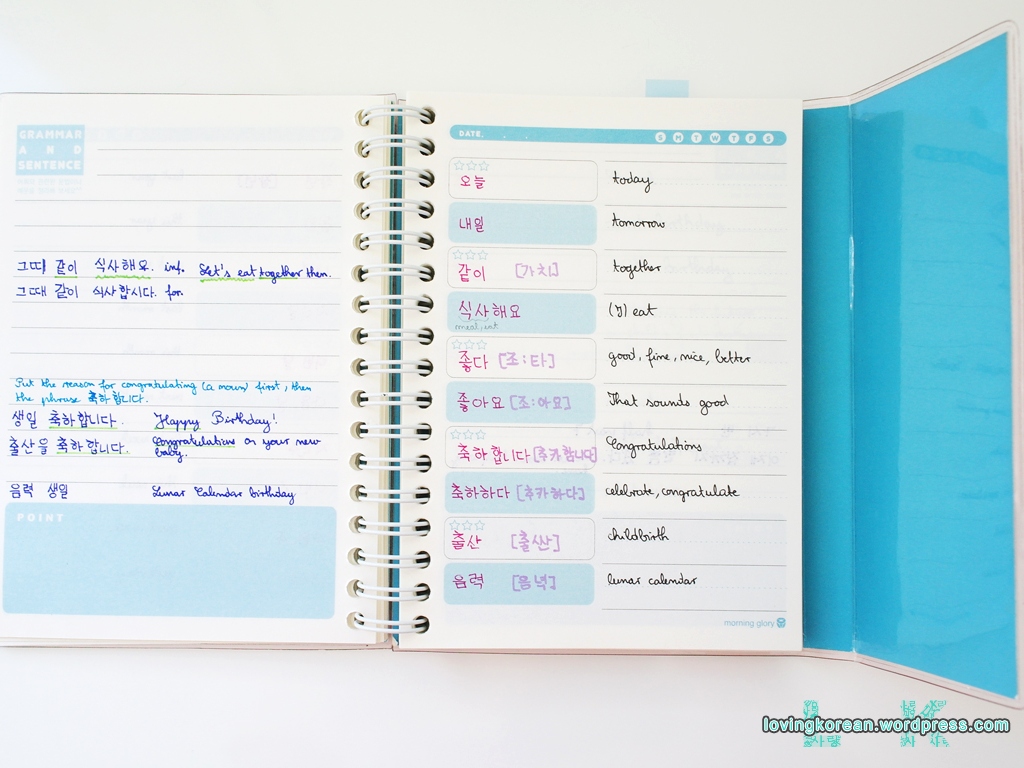 GRAMMAR
AND
SENTENCE
그때 같이 식사해요. inf. Let's eat together then.
그때 같이 식사합시다. for.
Put the reason for congratulating (a noun) first, then
the phrase 축하합니다.
생일 축하합니다. Happy Birthday!
출산을 축하합니다. Congratulations on your new
baby.
음력 생일 Lunar Calendar birthday
POINT
DATE. S M T W T F S
오늘 today
내일 tomorrow
같이 [가치] together
식사해요 (to) eat
meal, eat
좋다 [조:타] good, fine, nice, better
좋아요 [조:아요] That sounds good
축하합니다 [추카함니다] Congratulations
축하하다 [추카하다] celebrate, congratulate
출산 [출싼] childbirth
음력 [음녁] lunar calendar
morning glory
lovingkorean.wordpress.com